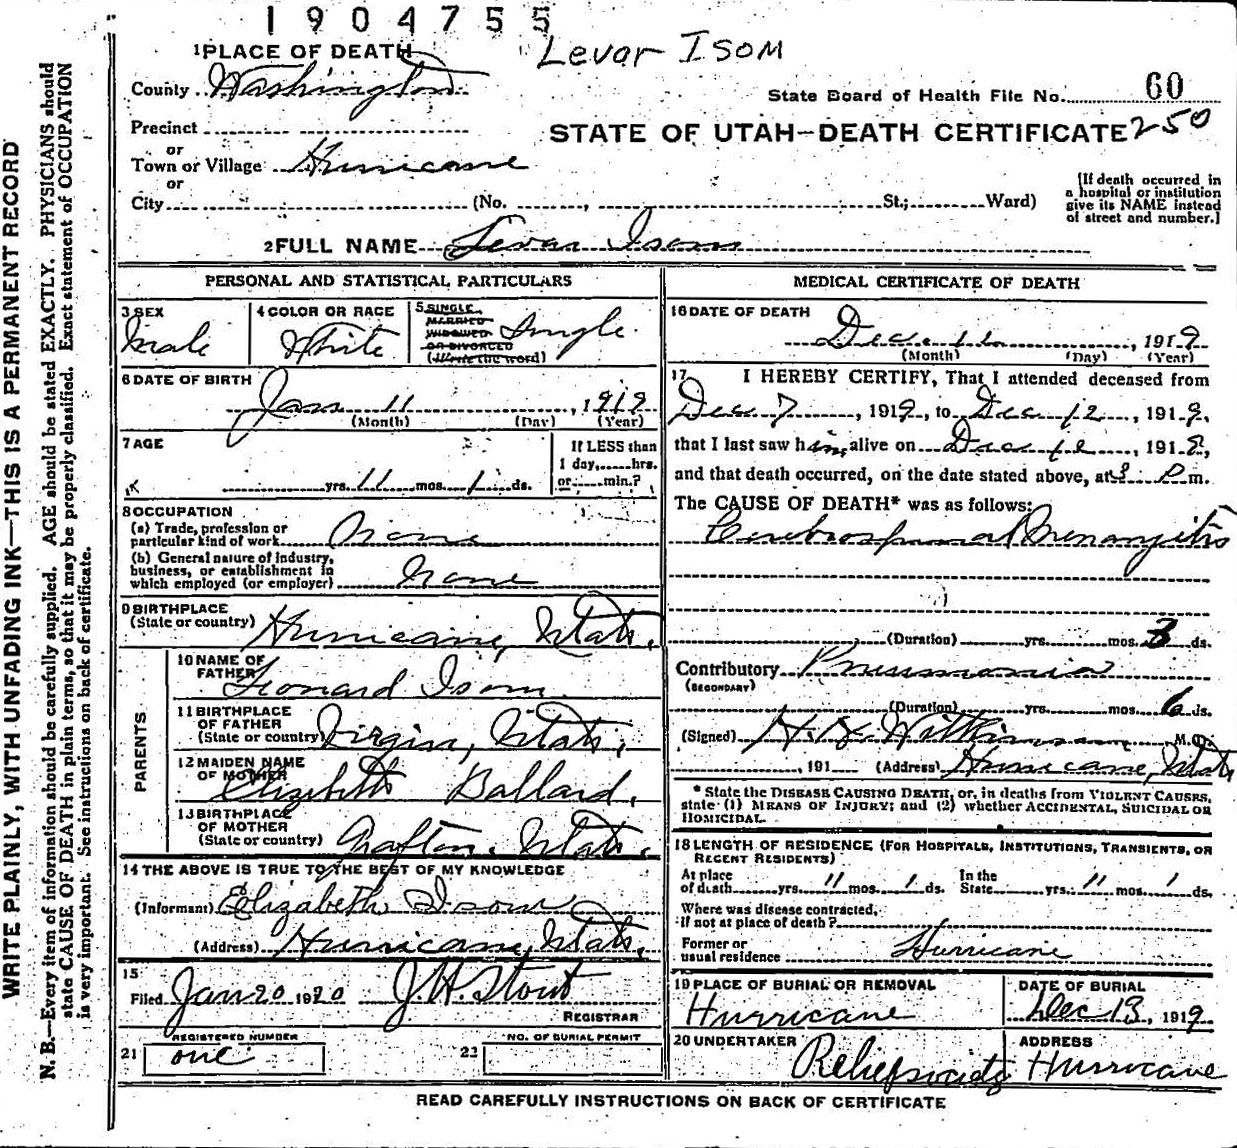 1904755
Levar Isom
1 PLACE OF DEATH
County Washington
State Board of Health File No. 60
Precinct
STATE OF UTAH—DEATH CERTIFICATE 250
or
Town or Village Hurricane
or
City (No. , St.; Ward)
[If death occurred in
a hospital or institution
give its NAME instead
of street and number.]
2 FULL NAME Levar Isom
PERSONAL AND STATISTICAL PARTICULARS
3 SEX
Male
4 COLOR OR RACE
White
5 SINGLE,
MARRIED
WIDOWED
OR DIVORCED
(Write the word)
Single
6 DATE OF BIRTH
Jan 11, 1919
(Month) (Day) (Year)
7 AGE
yrs. 11 mos. 1 ds.
If LESS than
1 day, hrs.
or min.?
8 OCCUPATION
(a) Trade, profession or
particular kind of work None
(b) General nature of industry,
business, or establishment in
which employed (or employer) None
9 BIRTHPLACE
(State or country) Hurricane, Utah.
PARENTS
10 NAME OF
FATHER Leonard Isom
11 BIRTHPLACE
OF FATHER
(State or country) Virgin, Utah.
12 MAIDEN NAME
OF MOTHER Elizabeth Ballard.
13 BIRTHPLACE
OF MOTHER
(State or country) Grafton, Utah.
14 THE ABOVE IS TRUE TO THE BEST OF MY KNOWLEDGE
(Informant) Elizabeth Isom
(Address) Hurricane, Utah.
15
Filed Jan 20 1920 J. H. Stout
REGISTRAR
REGISTERED NUMBER
21 one
NO. OF BURIAL PERMIT
22
MEDICAL CERTIFICATE OF DEATH
16 DATE OF DEATH
Dec. 12, 1919
(Month) (Day) (Year)
17 I HEREBY CERTIFY, That I attended deceased from
Dec 7, 1919, to Dec 12, 1919,
that I last saw him alive on Dec 12, 1919,
and that death occurred, on the date stated above, at 3 P. m.
The CAUSE OF DEATH* was as follows:
Cerebrospinal Menangitis
(Duration) yrs. mos. 3 ds.
Contributory Pneumonia
(SECONDARY)
(Duration) yrs. mos. 6 ds.
(Signed) Wilkinson M. D.
, 191 (Address) Hurricane, Utah
* State the DISEASE CAUSING DEATH, or, in deaths from VIOLENT CAUSES,
state (1) MEANS OF INJURY; and (2) whether ACCIDENTAL, SUICIDAL OR
HOMICIDAL.
18 LENGTH OF RESIDENCE (FOR HOSPITALS, INSTITUTIONS, TRANSIENTS, OR
RECENT RESIDENTS)
At place
of death yrs. 11 mos. 1 ds.
In the
State yrs. 11 mos. 1 ds.
Where was disease contracted,
if not at place of death?
Former or
usual residence Hurricane
19 PLACE OF BURIAL OR REMOVAL
Hurricane
DATE OF BURIAL
Dec 13, 1919
20 UNDERTAKER
Relief society
ADDRESS
Hurricane
READ CAREFULLY INSTRUCTIONS ON BACK OF CERTIFICATE
WRITE PLAINLY, WITH UNFADING INK—THIS IS A PERMANENT RECORD
N. B.—Every item of information should be carefully supplied. AGE should be stated EXACTLY. PHYSICIANS should
state CAUSE OF DEATH in plain terms, so that it may be properly classified. Exact statement of OCCUPATION
is very important. See instructions on back of certificate.